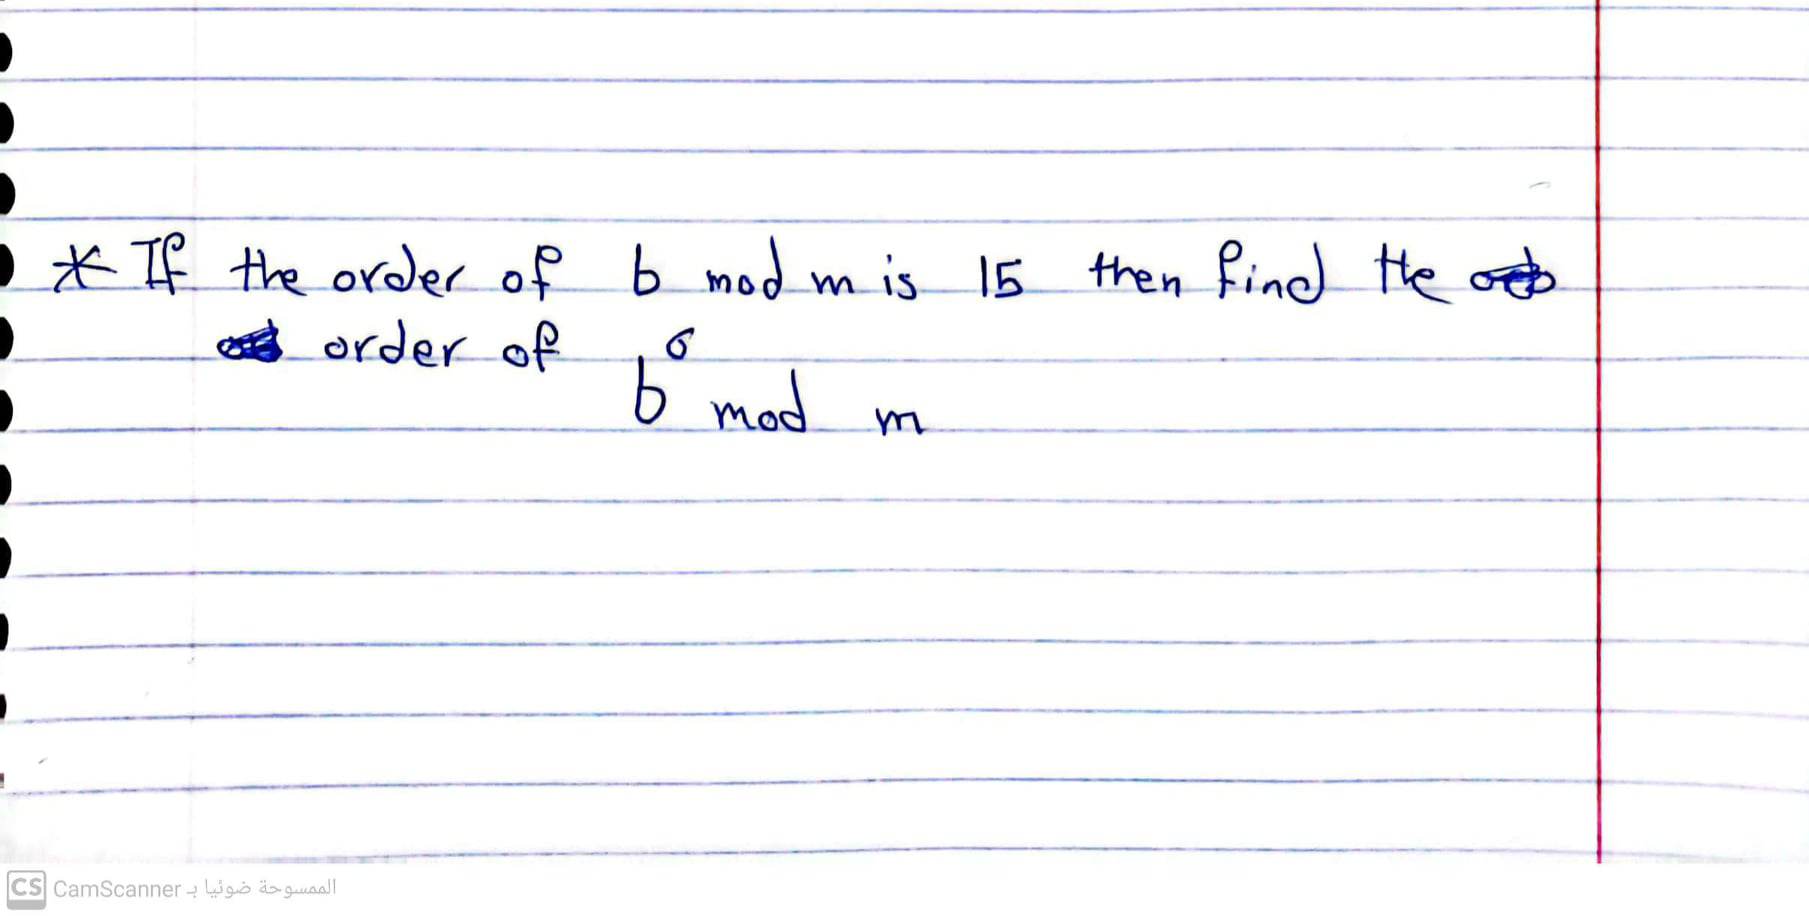 * If the order of b mod m is 15 then find the
order of b⁶ mod m
CS CamScanner الممسوحة ضوئيا بـ